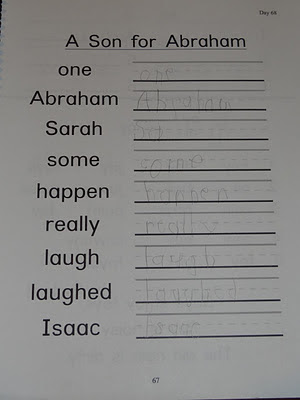 Day 68
A Son for Abraham
one one
Abraham Abraham
Sarah
some some
happen happen
really really
laugh laugh
laughed laughed
Isaac Isaac
67